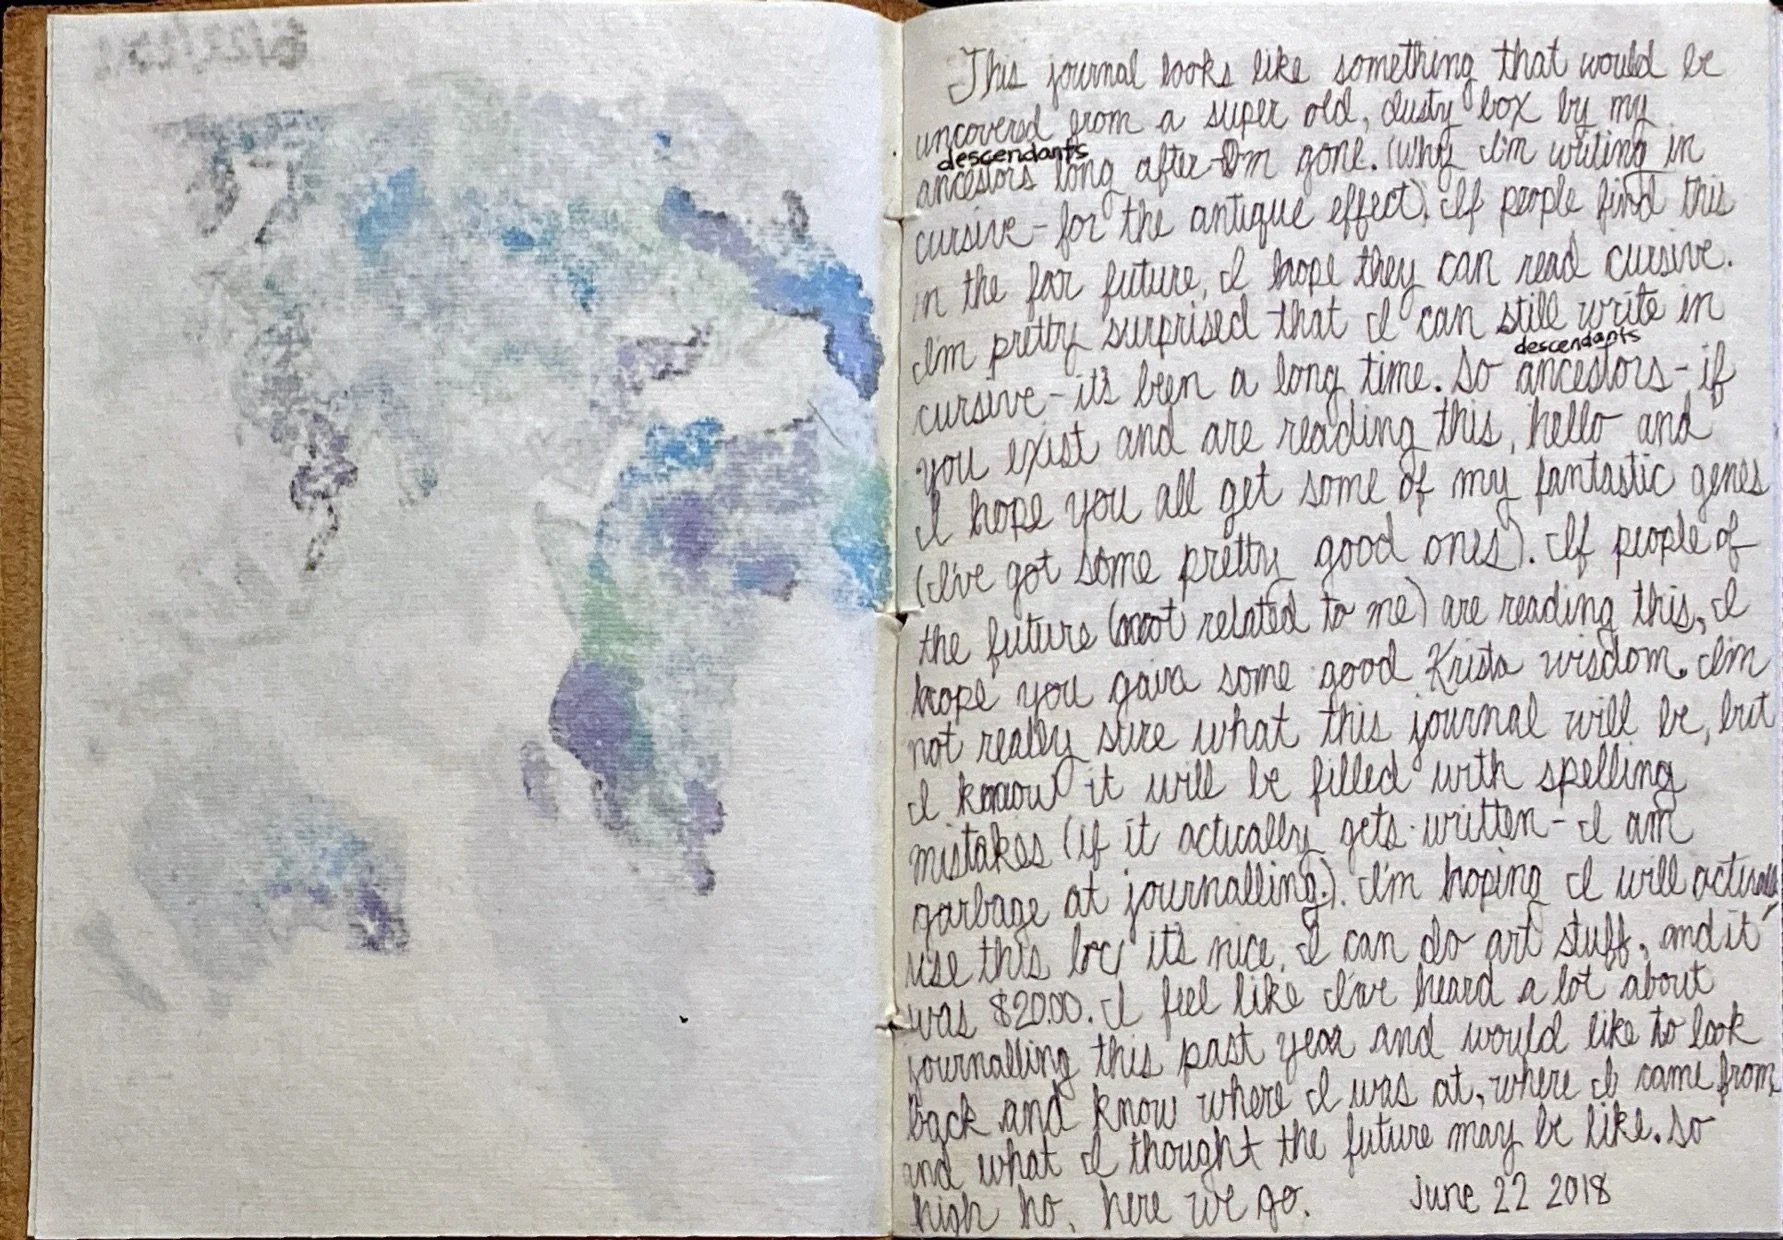 6/22/2018
This journal looks like something that would be
uncovered from a super old, dusty box by my
descendants
ancestors long after I'm gone. (Why I'm writing in
cursive - for the antique effect). If people find this
in the far future, I hope they can read cursive.
I'm pretty surprised that I can still write in
descendants
cursive - it's been a long time. So ancestors - if
you exist and are reading this, hello and
I hope you all get some of my fantastic genes
(I've got some pretty good ones). If people of
the future (not related to me) are reading this, I
hope you gain some good Krista wisdom. I'm
not really sure what this journal will be, but
I know it will be filled with spelling
mistakes (if it actically gets written - I am
garbage at journalling). I'm hoping I will actually
use this bc/ it's nice, I can do art stuff, and it
was $20.00. I feel like I've heard a lot about
journalling this past year and would like to look
back and know where I was at, where I came from,
and what I thought the future may be like. So
high ho, here we go. June 22 2018